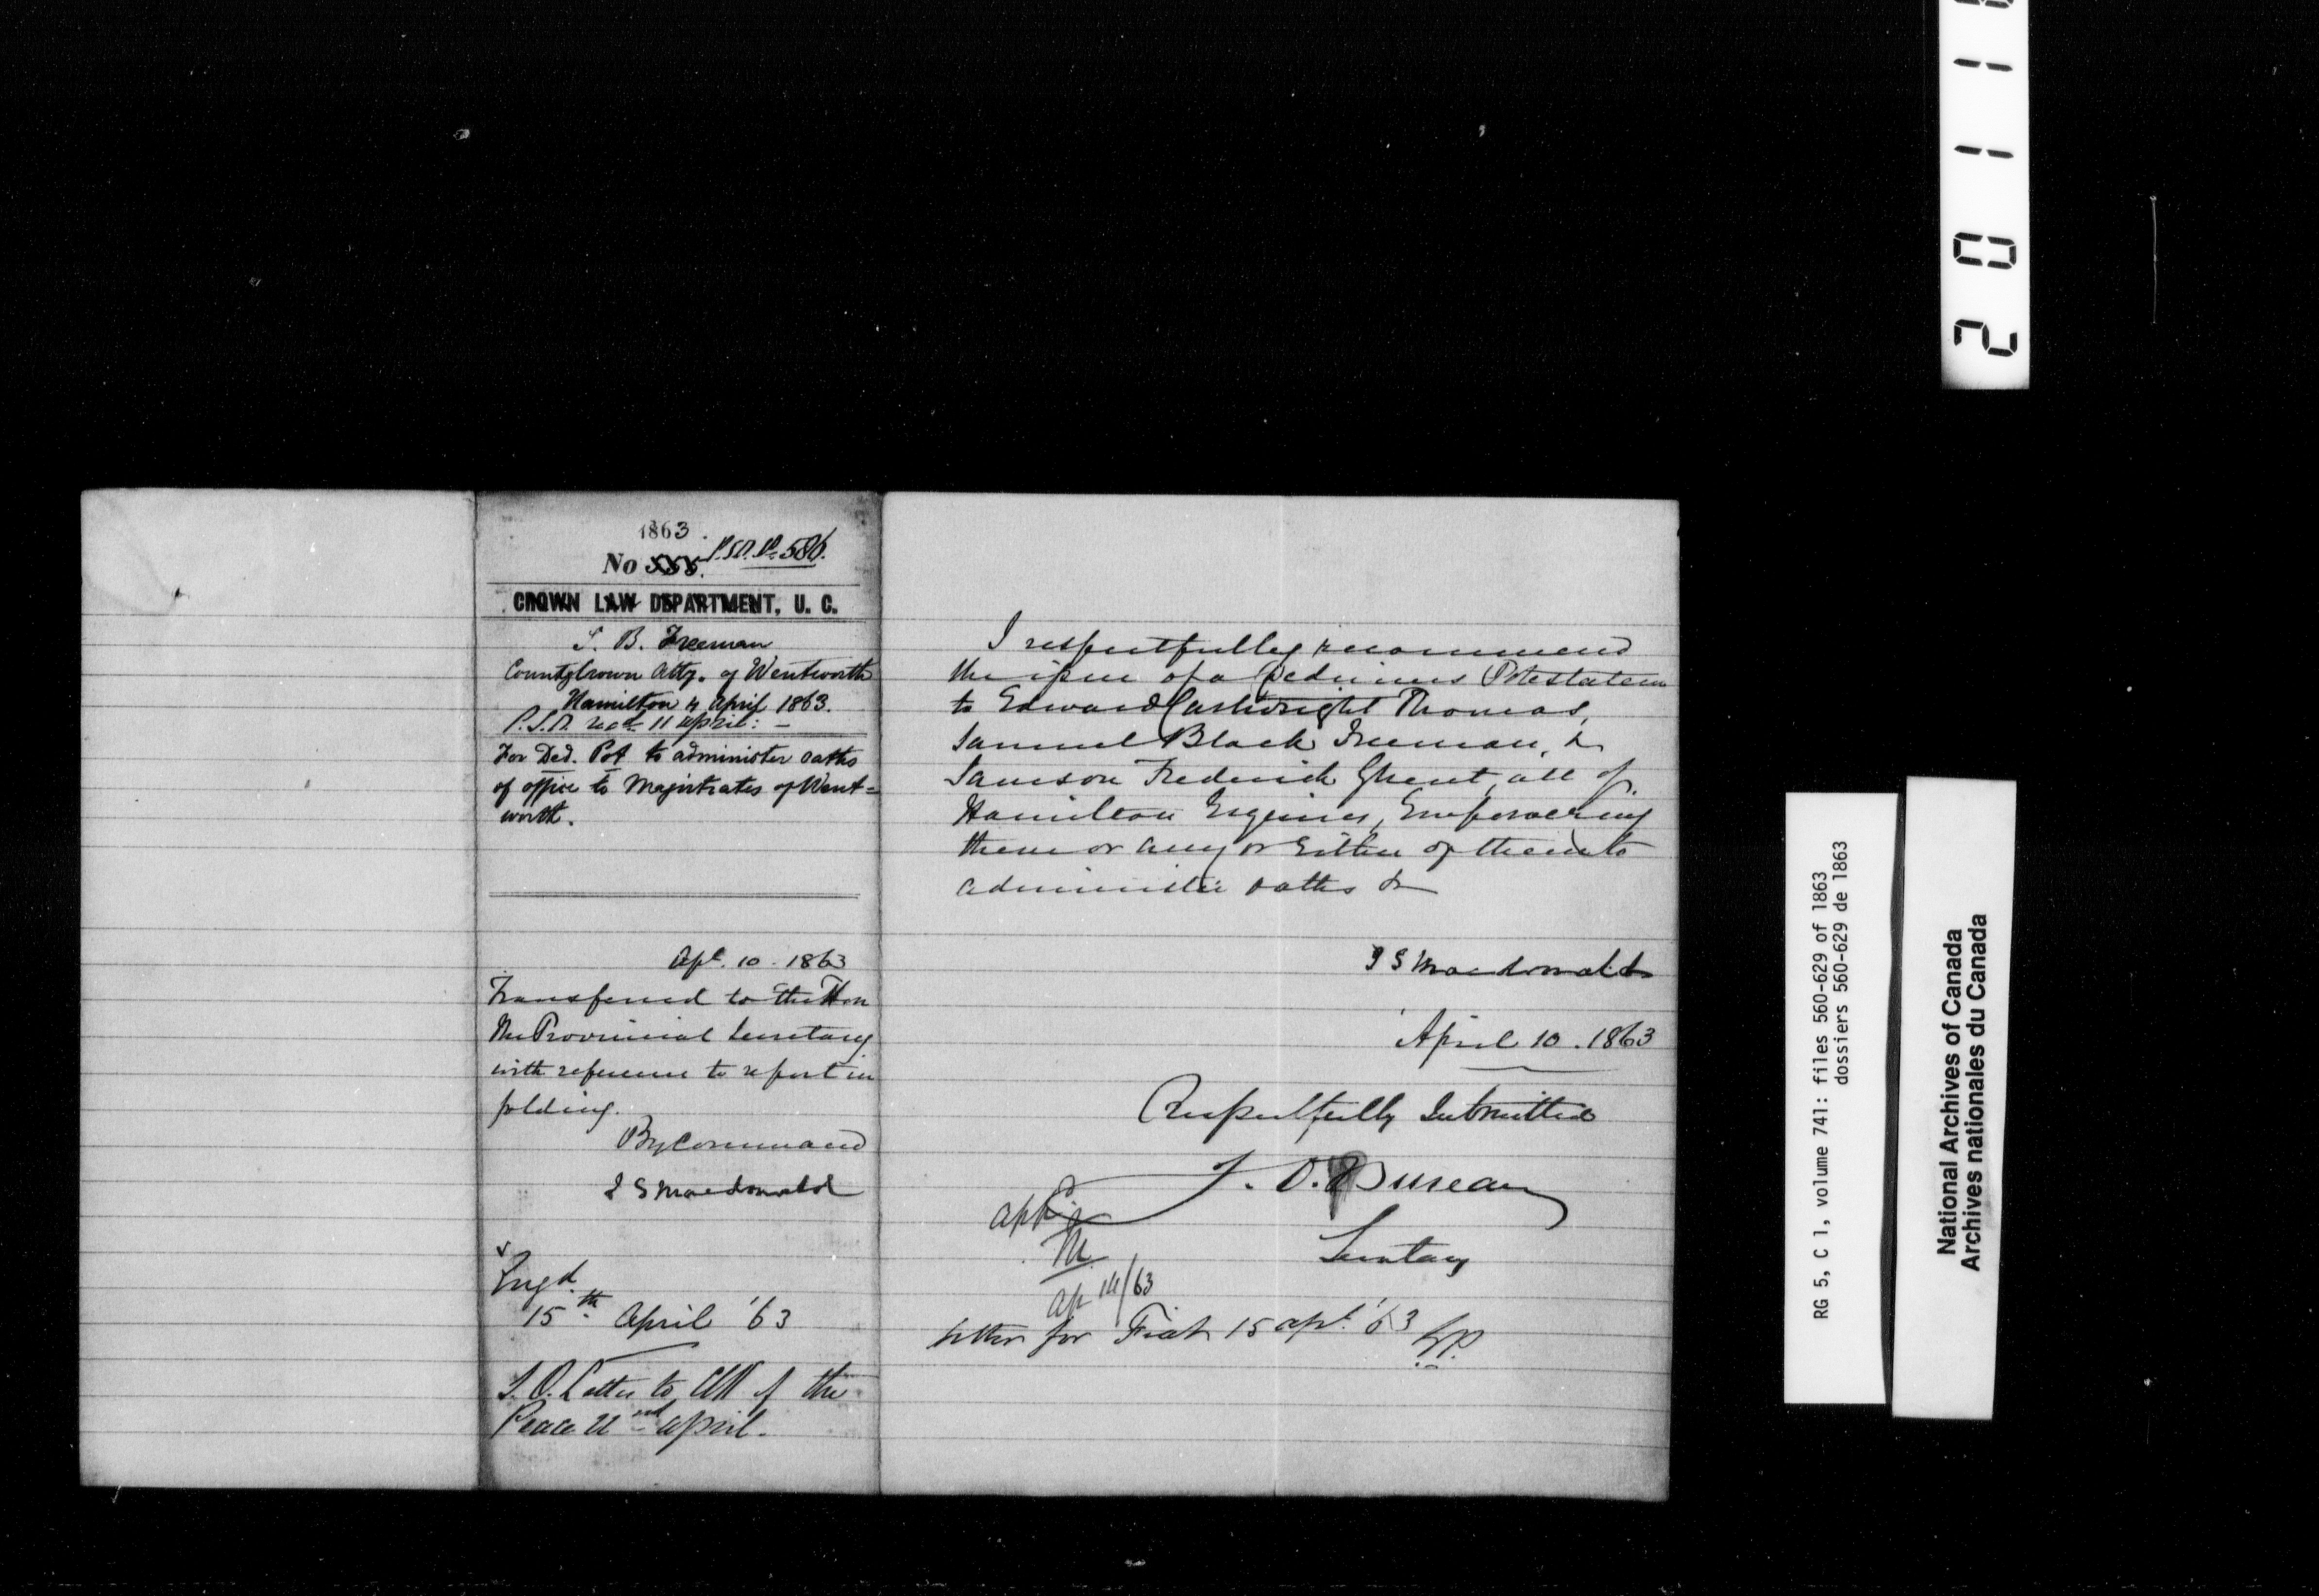 1863.
No 555. P.S.O. No 586.
CROWN LAW DEPARTMENT, U. C.
S. B. Freeman
County Crown Atty. of Wentworth
Hamilton 4 April 1863.
P.S.O. recd. 11 April: -
For Ded. Pot to administer oaths
of office to Magistrates of Went=
worth.
Apl. 10. 1863
Transferred to the Hon
the Provincial Secretary
with reference to report in
folding.
By Command
J S Macdonald
Engd.
15th April '63
S.O. Letter to Clk of the
Peace 22nd April.
I respectfully recommend
the issue of a Dedimus Potestatem
to Edward Cartwright Thomas,
Samuel Black Freeman, &
Samson Frederick Ghent, all of
Hamilton Esquires, Empowering
them or any or Either of them to
administer oaths &c
J S Macdonald
April 10. 1863
Respectfully Submitted
J. O. Bureau
Secretary
appd.
M
Ap 14/63
letter for Fiat 15 apl. '63
2011
RG 5, C 1, volume 741: files 560-629 of 1863
dossiers 560-629 de 1863
National Archives of Canada
Archives nationales du Canada